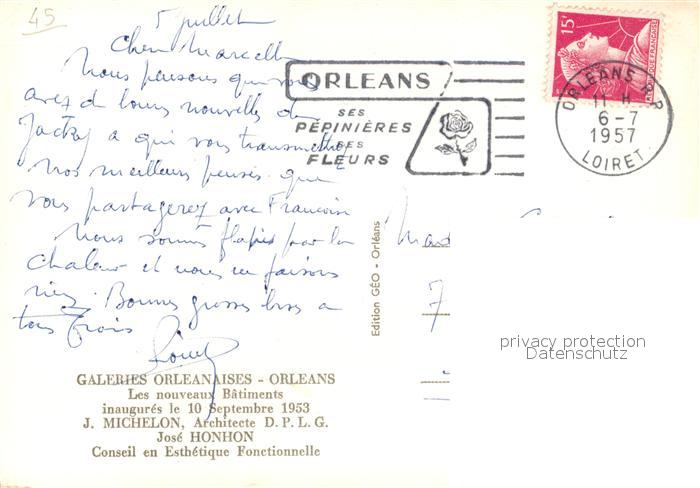 45
5 juillet
Chère Marcelle
Nous pensons que vous
avez de bonnes nouvelles de
Jacky a qui vous transmettrez
nos meilleurs pensés que
vous partagerez avec Francoise
Nous sommes flapis par la
chaleur et nous ne faisons
rien. Bonnes grosses bises a
tous trois
ORLEANS
SES
PÉPINIÈRES
SES
FLEURS
15F
ORLEANS R.P.
11 H
6-7
1957
LOIRET
Edition GÉO - Orléans
7
privacy protection
Datenschutz
GALERIES ORLEANAISES - ORLEANS
Les nouveaux Bâtiments
inaugurés le 10 Septembre 1953
J. MICHELON, Architecte D. P. L. G.
José HONHON
Conseil en Esthétique Fonctionnelle